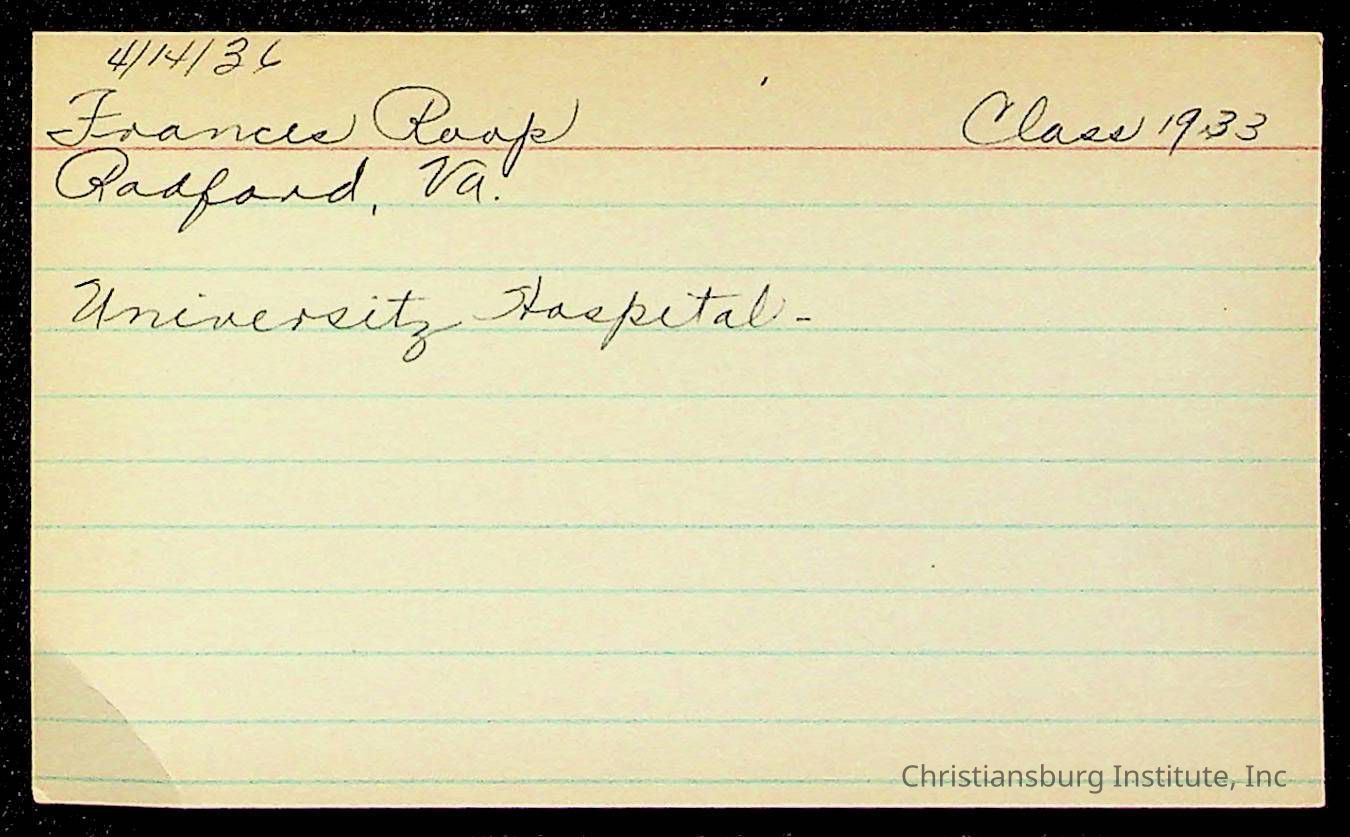 4/14/36
Frances Roop Class 1933
Radford, Va.
University Hospital-
Christiansburg Institute, Inc